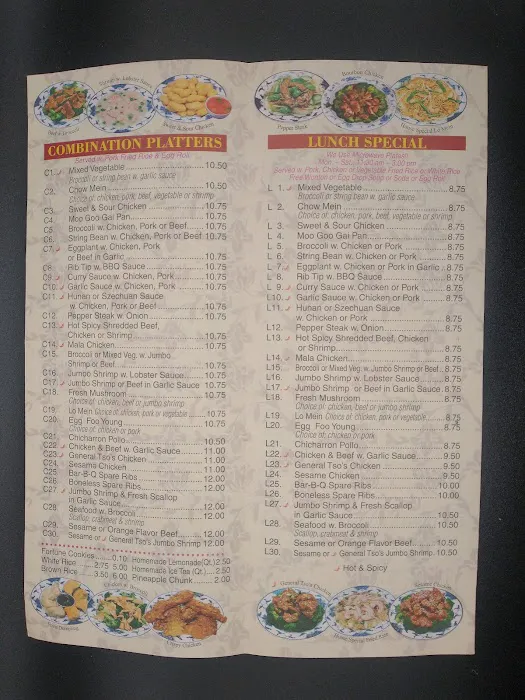 COMBINATION PLATTERS
Served w. Pork Fried Rice & Egg Roll
C1. Mixed Vegetable 10.50
Broccoli or string bean w. garlic sauce
C2. Chow Mein 10.75
Choice of: chicken, pork, beef, vegetable or shrimp
C3. Sweet & Sour Chicken 10.75
C4. Moo Goo Gai Pan 10.75
C5. Broccoli w. Chicken, Pork or Beef 10.75
C6. String Bean w. Chicken, Pork or Beef 10.75
C7. Eggplant w. Chicken, Pork
or Beef in Garlic 10.75
C8. Rib Tip w. BBQ Sauce 10.75
C9. Curry Sauce w. Chicken, Pork 10.75
C10. Garlic Sauce w. Chicken, Pork 10.75
C11. Hunan or Szechuan Sauce
w. Chicken, Pork or Beef 10.75
C12. Pepper Steak w. Onion 10.75
C13. Hot Spicy Shredded Beef,
Chicken or Shrimp 10.75
C14. Mala Chicken 10.75
C15. Broccoli or Mixed Veg. w. Jumbo
Shrimp or Beef 10.75
C16. Jumbo Shrimp w. Lobster Sauce 10.75
C17. Jumbo Shrimp or Beef in Garlic Sauce 10.75
C18. Fresh Mushroom 10.75
Choice of: chicken, beef or jumbo shrimp
C19. Lo Mein Choice of: chicken, pork or vegetable 10.75
C20. Egg Foo Young 10.75
Choice of: chicken or pork
C21. Chicharron Pollo 10.50
C22. Chicken & Beef w. Garlic Sauce 11.00
C23. General Tso's Chicken 11.00
C24. Sesame Chicken 11.00
C25. Bar-B-Q Spare Ribs 12.00
C26. Boneless Spare Ribs 12.00
C27. Jumbo Shrimp & Fresh Scallop
in Garlic Sauce 12.00
C28. Seafood w. Broccoli 12.00
Scallop, crabmeat & shrimp
C29. Sesame or Orange Flavor Beef 12.00
C30. Sesame or General Tso's Jumbo Shrimp 12.00
Fortune Cookies 0.10 Homemade Lemonade(Qt.) 2.50
White Rice 2.75 5.00 Homemade Ice Tea (Qt.) 2.50
Brown Rice 3.50 6.00 Pineapple Chunk 2.00
Bourbon Chicken
Pepper Steak
LUNCH SPECIAL
Served w. Pork, Chicken or Vegetable Fried Rice or White Rice
Free Wonton or Egg Drop Soup or Soda or Egg Roll
L 1. Mixed Vegetable 8.75
Broccoli or string bean w. garlic sauce
L 2. Chow Mein 8.75
Choice of: chicken, pork, beef, vegetable or shrimp
L 3. Sweet & Sour Chicken 8.75
L 4. Moo Goo Gai Pan 8.75
L 5. Broccoli w. Chicken or Pork 8.75
L 6. String Bean w. Chicken or Pork 8.75
L 7. Eggplant w. Chicken or Pork in Garlic 8.75
L 8. Rib Tip w. BBQ Sauce 8.75
L 9. Curry Sauce w. Chicken or Pork 8.75
L10. Garlic Sauce w. Chicken or Pork 8.75
L11. Hunan or Szechuan Sauce
w. Chicken or Pork 8.75
L12. Pepper Steak w. Onion 8.75
L13. Hot Spicy Shredded Beef, Chicken
or Shrimp 8.75
L14. Mala Chicken 8.75
L15. Broccoli or Mixed Veg. w. Jumbo Shrimp or Beef 8.75
L16. Jumbo Shrimp w. Lobster Sauce 8.75
L17. Jumbo Shrimp or Beef in Garlic Sauce 8.75
L18. Fresh Mushroom 8.75
Choice of: chicken, beef or jumbo shrimp
L19. Lo Mein Choice of: chicken, pork or vegetable 8.75
L20. Egg Foo Young 8.75
Choice of: chicken or pork
L21. Chicharron Pollo 8.75
L22. Chicken & Beef w. Garlic Sauce 9.50
L23. General Tso's Chicken 9.50
L24. Sesame Chicken 9.50
L25. Bar-B-Q Spare Ribs 10.00
L26. Boneless Spare Ribs 10.00
L27. Jumbo Shrimp & Fresh Scallop
in Garlic Sauce 10.50
L28. Seafood w. Broccoli 10.50
Scallop, crabmeat & shrimp
L29. Sesame or Orange Flavor Beef 10.50
L30. Sesame or General Tso's Jumbo Shrimp 10.50
Hot & Spicy
General Tso's Chicken
Sesame Chicken